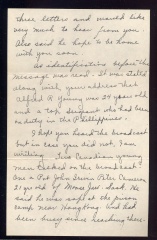 three letters and would like
very much to hear from you
Also said he hope to be home
with you soon
As identification before the
message was read. It was stated
along with your address that
Alfred R Young was 24 years old
and a top sergeant who had been
on duty in the Philippines.
I hope you heard the broadcast
but in case you did not, I am
writing. Two Canadian young
men talked on the broadcast.
one a Pvt John Irwin Peter Cameron
21 yrs old of Moose Jaw. Sask. He
said he was safe at the prison
camp near Hongkong and had
been busy since reaching there.